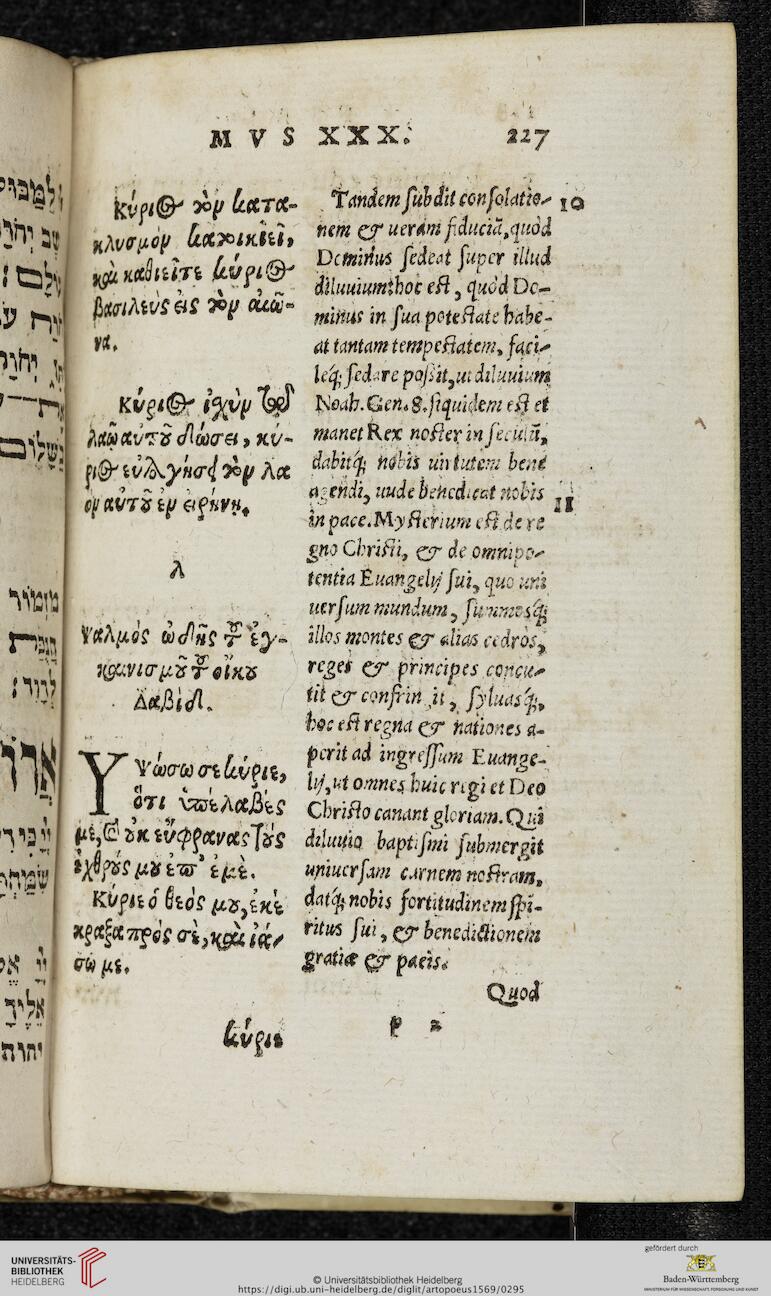 MVS XXX. 227
Κύριος τὸν κατα-
κλυσμὸν κατοικιεῖ,
καὶ καθιεῖται κύριος
βασιλεὺς εἰς τὸν αἰῶ-
να.
Κύριος ἰχὺν τῷ
λαῷ αὐτοῦ δώσει, κύ-
ριος εὐλογήσει τὸν λα
ὸν αὐτοῦ ἐν εἰρήνῃ.
λ
Ψαλμὸς ᾠδῆς τοῦ ἐγ-
καινισμοῦ τοῦ οἴκου
Δαβίδ.
Ὑψώσω σε κύριε,
ὅτι ὑπέλαβές
με, καὶ οὐκ εὔφρανας τοὺς
ἐχθρούς μου ἐπ' ἐμὲ.
Κύριε ὁ θεός μου, ἐκέ
κραξα πρός σὲ, καὶ ἰά-
σω με.
κύριε
Tandem subdit consolatio- 10
nem & uerám fiduciã, quòd
Dominus sedeat super illud
diluuium: hoc est, quòd Do-
minus in sua potestate habe-
at tantam tempestatem, faci-
leq́; sedare possit, ut diluuium
Noah. Gen. 8. siquidem est et
manet Rex noster in seculũ,
dabitq́; nobis uirtutem bene
agendi, unde benedicat nobis 11
in pace. Mysterium est de re
gno Christi, & de omnipo-
tentia Euangelij sui, quo uni
uersum mundum, summosq́;
illos montes & alias cedros,
reges & principes concu-
tit & confringit, syluasq́;,
hoc est regna & nationes a-
perit ad ingressum Euange-
lij, ut omnes huic regi et Deo
Christo canant gloriam. Qui
diluuio baptismi submergit
uniuersam carnem nostram,
datq́; nobis fortitudinem spi-
ritus sui, & benedictionem
gratiæ & pacis.
Quod
p 2
UNIVERSITÄTS-
BIBLIOTHEK
HEIDELBERG
© Universitätsbibliothek Heidelberg
https://digi.ub.uni-heidelberg.de/diglit/artopoeus1569/0295
gefördert durch
Baden-Württemberg
MINISTERIUM FÜR WISSENSCHAFT, FORSCHUNG UND KUNST